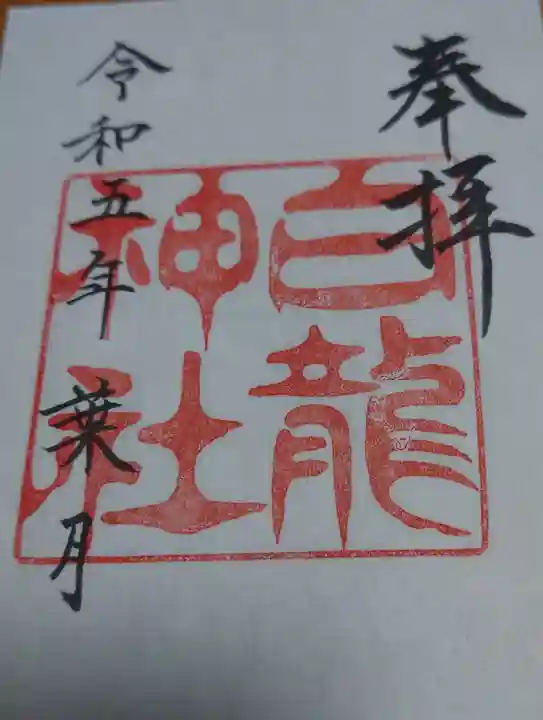 奉拝
白龍
神社
令和五年 葉月